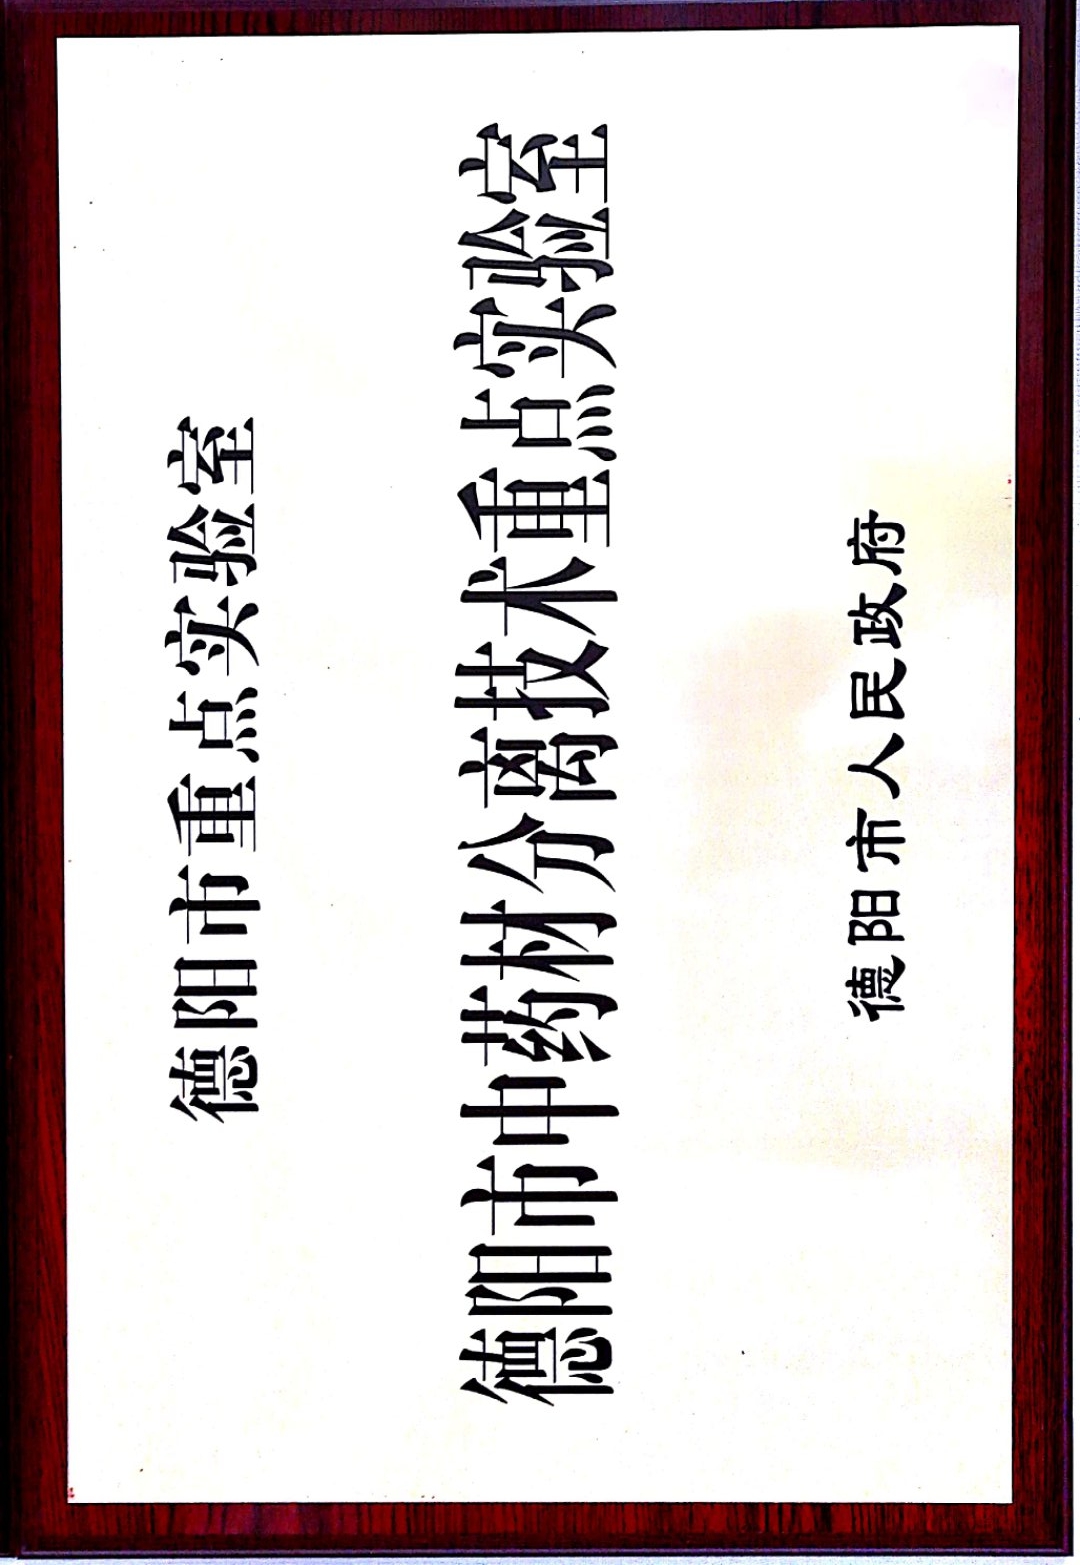 德阳市重点实验室
德阳市中药材分离技术重点实验室
德阳市人民政府